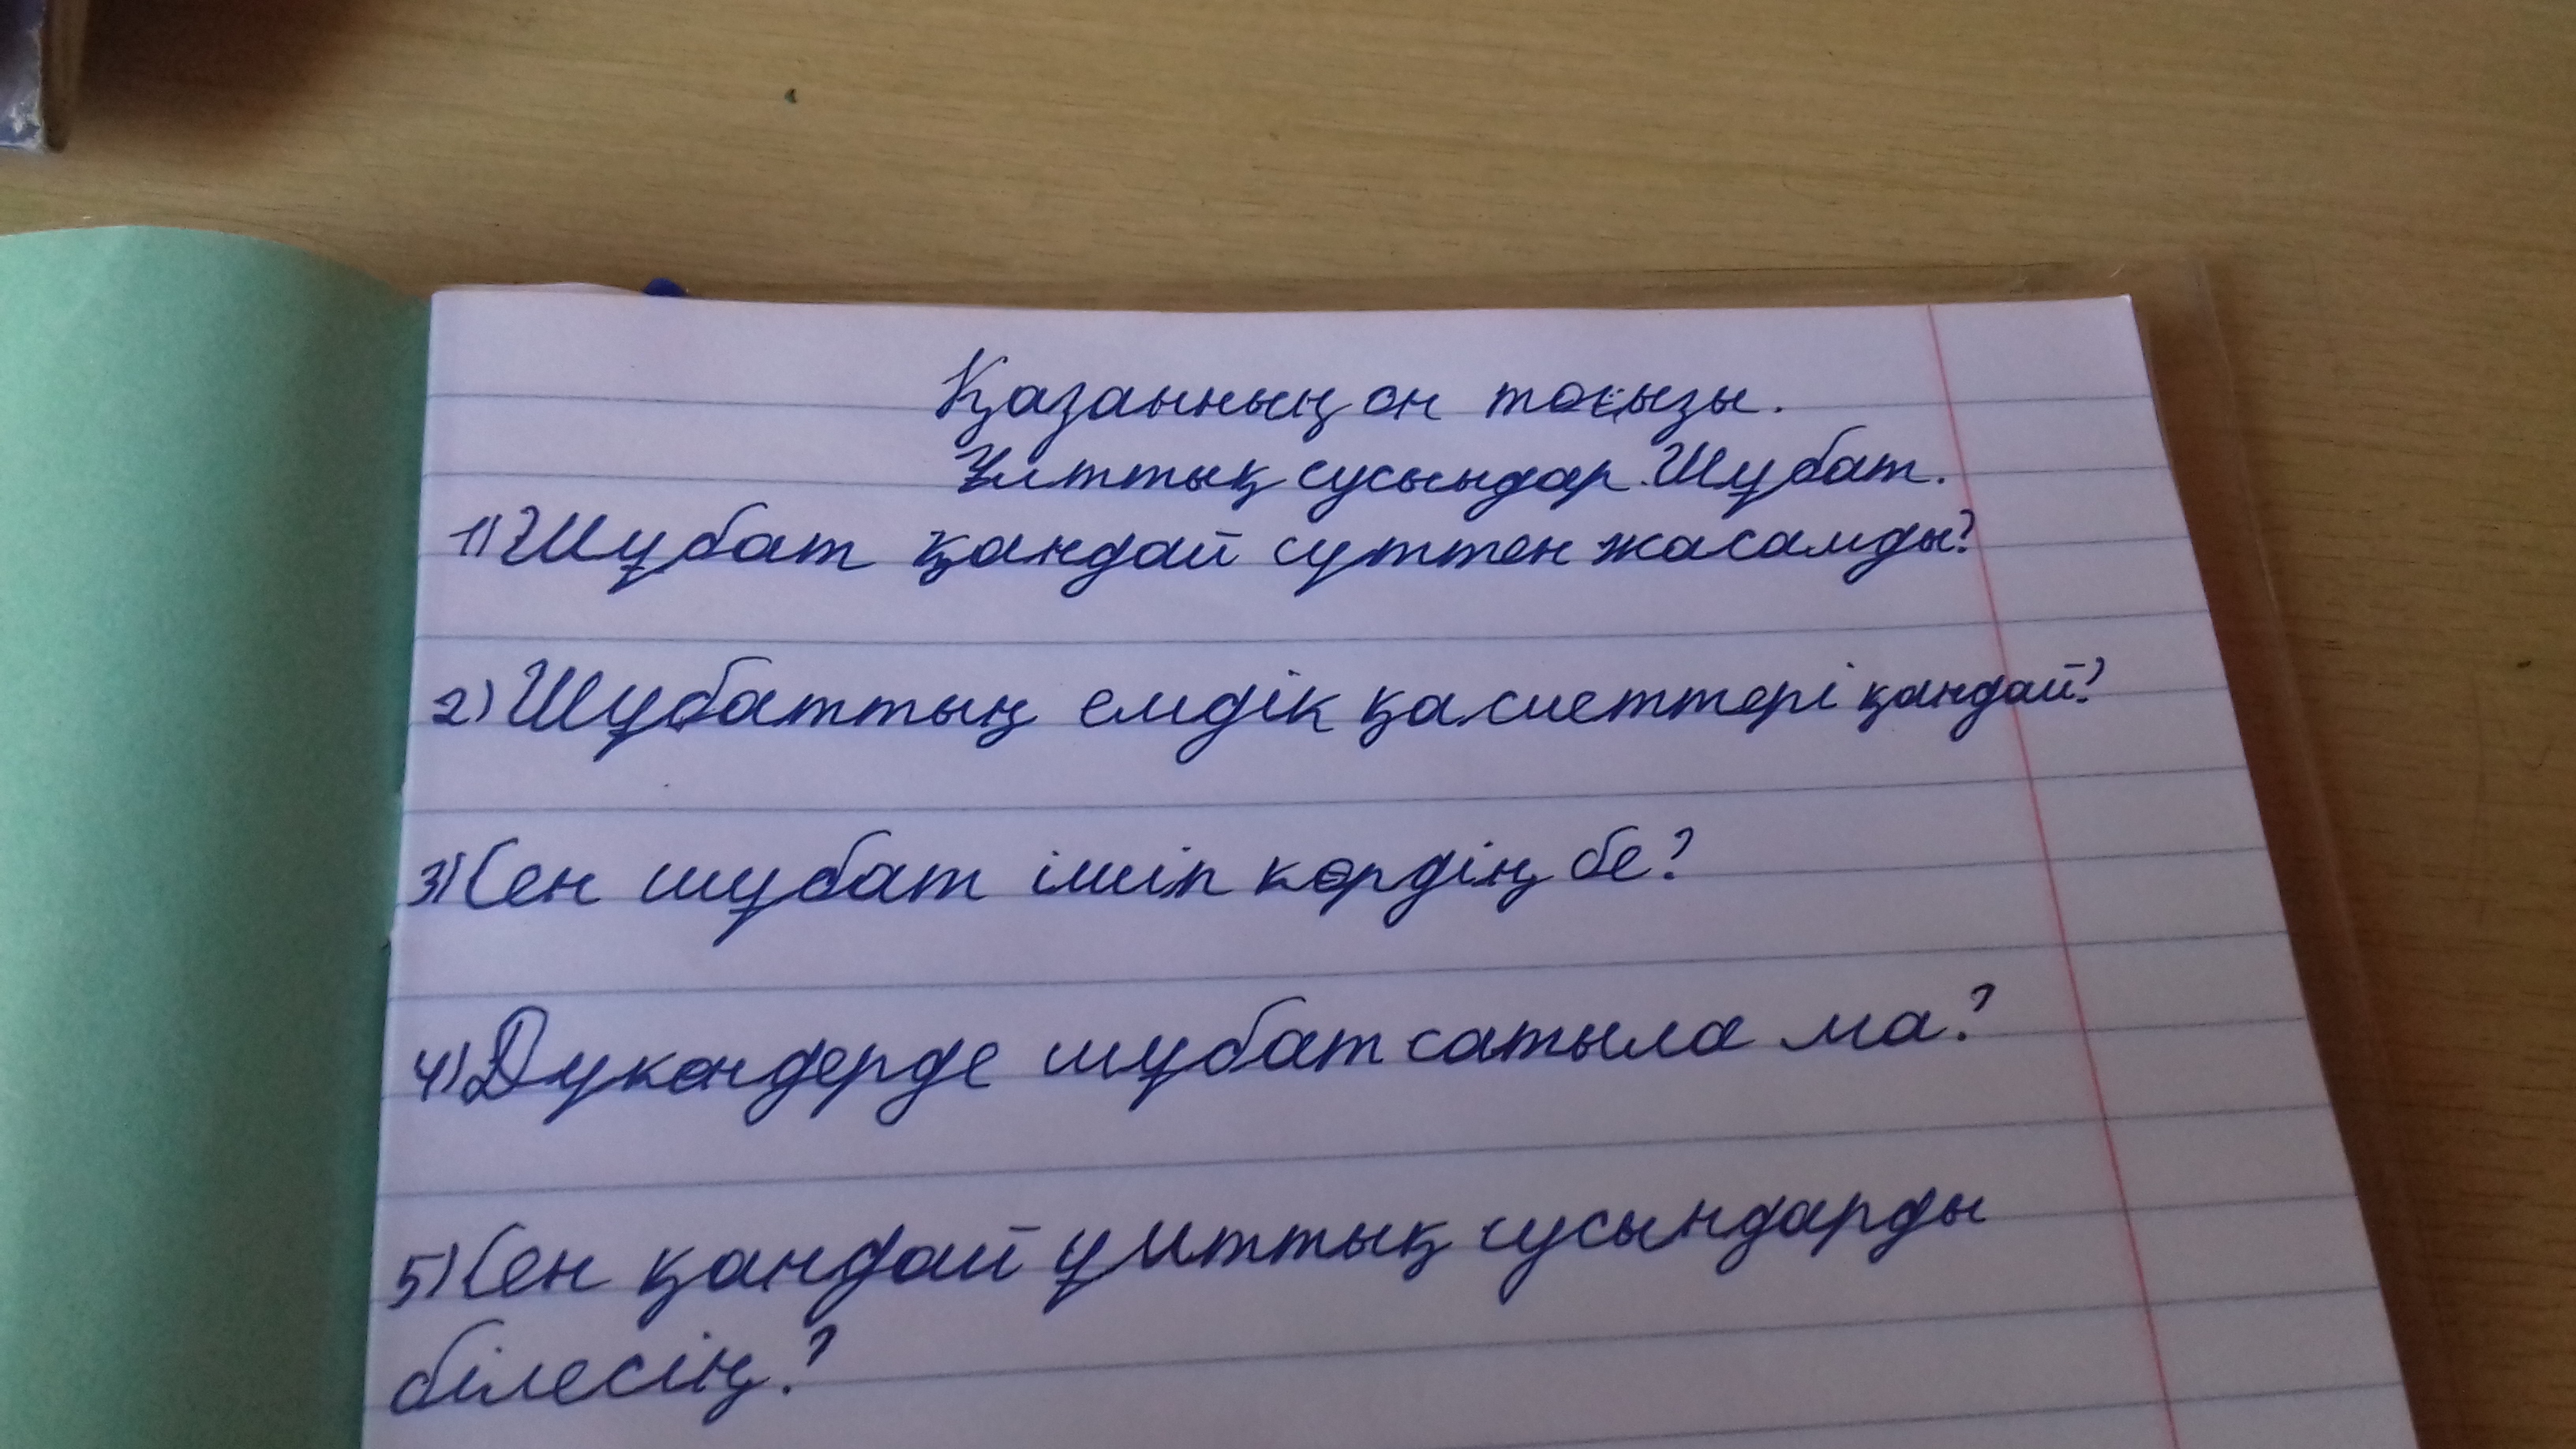 Қазанның он тоғызы.
Ұлттық сусындар. Шұбат.
1) Шұбат қандай сүттен жасалады?
2) Шұбаттың емдік қасиеттері қандай?
3) Сен шұбат ішіп көрдің бе?
4) Дүкендерде шұбат сатыла ма?
5) Сен қандай ұлттық сусындарды
білесің?